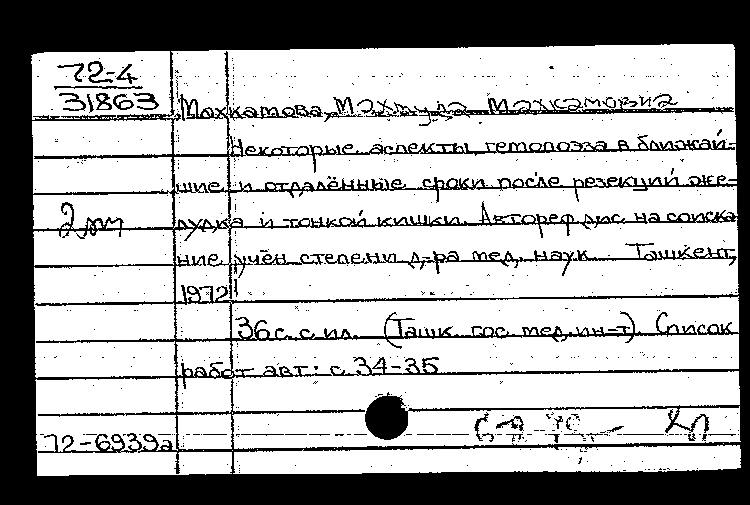 72-4
31863
Махкамова, Махмуда Махкамовна
Некоторые аспекты гемопоэза в ближай-
шие и отдалённые сроки после резекций же-
лудка и тонкой кишки. Автореф дис. на соиска
ние учён степени д-ра мед. наук. Ташкент,
1972
36 с. с ил. (Ташк. гос. мед. ин-т). Список
работ авт.: с 34-35
72-6939а